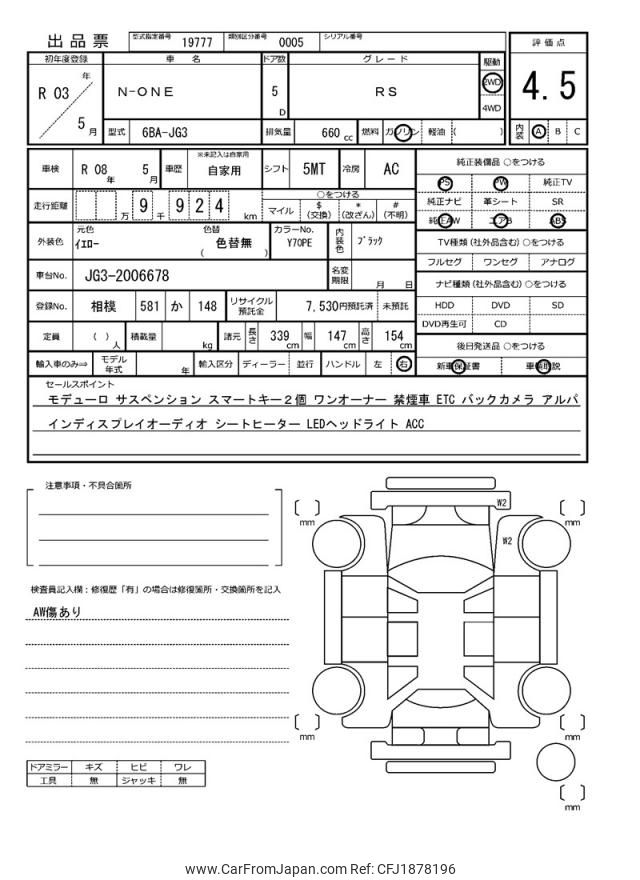 出品票 型式指定番号 19777 類別区分番号 0005 シリアル番号
評価点
4.5
内装 A B C
初年度登録 車名 ドア数 グレード 駆動
R 03 年 5 月 N-ONE 5 D RS 2WD 4WD
型式 6BA-JG3 排気量 660 cc 燃料 ガソリン 軽油 ( )
車検 R 08 年 5 月 車歴 ※未記入は自家用 自家用 シフト 5MT 冷房 AC
走行距離 万 9 千 9 2 4 km ○をつける マイル $(交換) *(改ざん) #(不明)
外装色 元色 イエロー 色替 ( 色替無 ) カラーNo. Y70PE 内装色 ブラック
車台No. JG3-2006678 名変期限 月 日
登録No. 相模 581 か 148 リサイクル預託金 7,530円預託済 未預託
定員 ( ) 人 積載量 kg 諸元 長さ 339 cm 幅 147 cm 高さ 154 cm
輸入車のみ⇒ モデル年式 年 輸入区分 ディーラー 並行 ハンドル 左 右
純正装備品 ○をつける
PS PW 純正TV
純正ナビ 革シート SR
純正AW エアB ABS
TV種類(社外品含む)○をつける
フルセグ ワンセグ アナログ
ナビ種類(社外品含む)○をつける
HDD DVD SD
DVD再生可 CD
後日発送品 ○をつける
新車保証書 車輌取説
セールスポイント
モデューロ サスペンション スマートキー2個 ワンオーナー 禁煙車 ETC バックカメラ アルパ
インディスプレイオーディオ シートヒーター LEDヘッドライト ACC
注意事項・不具合箇所
検査員記入欄:修復歴「有」の場合は修復箇所・交換箇所を記入
AW傷あり
ドアミラー キズ ヒビ ワレ
工具 無 ジャッキ 無
W2
W2
mm
mm
mm
mm
mm
www.CarFromJapan.com Ref: CFJ1878196